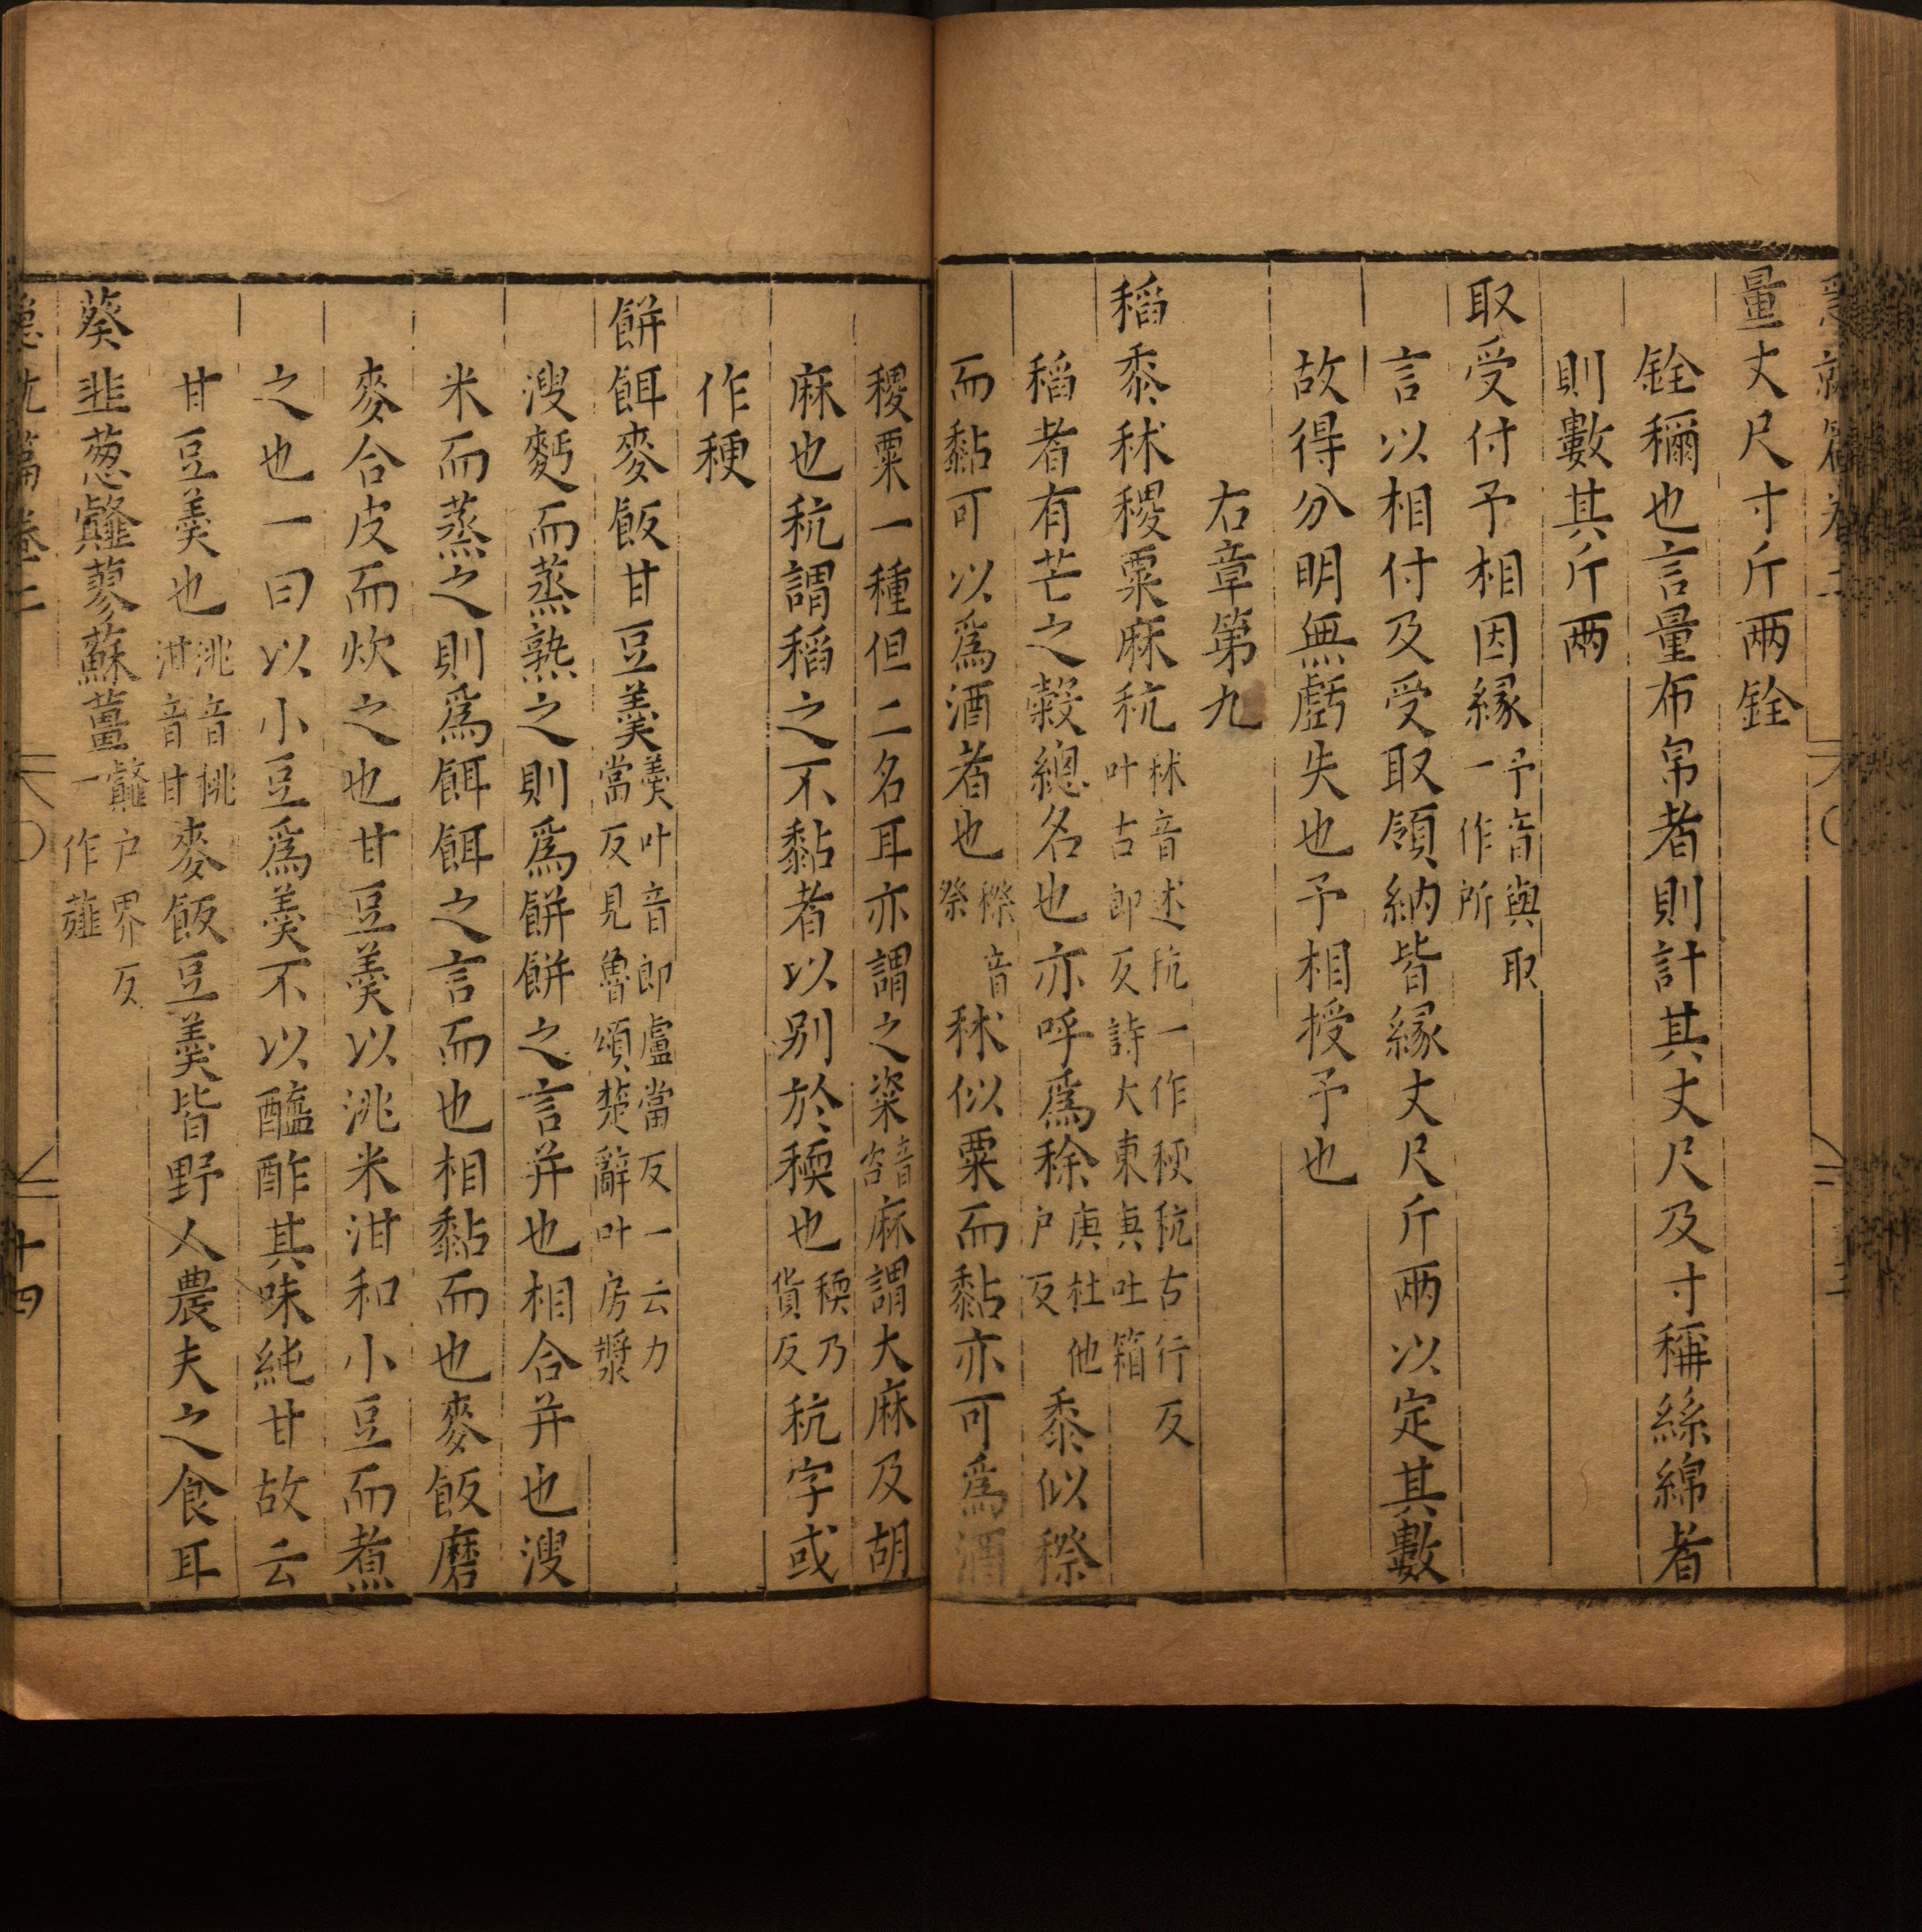 急就篇卷二
量丈尺寸斤兩銓
銓稱也言量布帛者則計其丈尺及寸稱絲綿者
則數其斤兩
取受付予相因緣予音與取一作所
言以相付及受取領納皆緣丈尺斤兩以定其數
故得分明無虧失也予相授予也
右章第九
稻黍秫稷粟麻秔秫音述秔一作稉秔古行反叶古郎反詩大東庚吐箱
稻者有芒之穀總名也亦呼爲稌庚杜他戶反黍似穄
而黏可以爲酒者也穄音祭秫似粟而黏亦可爲酒
稷粟一種但二名耳亦謂之粢音咨麻謂大麻及胡
麻也秔謂稻之不黏者以别於稬也稬乃貨反秔字或
作稉
餅餌麥飯甘豆羹羹叶音郎盧當反一云力當反見魯頌楚辭叶房漿
溲麪而蒸熟之則爲餅餅之言并也相合并也溲
米而蒸之則爲餌餌之言而也相黏而也麥飯磨
麥合皮而炊之也甘豆羹以洮米泔和小豆而煮
之也一曰以小豆爲羹不以醯酢其味純甘故云
甘豆羹也洮音桃泔音甘麥飯豆羹皆野人農夫之食耳
葵韭葱䪥蓼蘇薑䪥户界反一作薤
急就篇卷二
十四